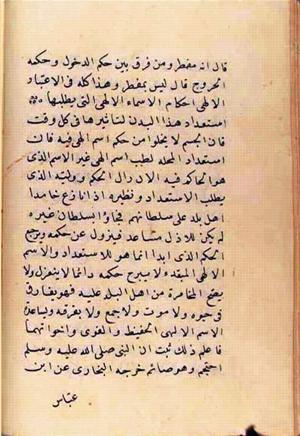 قال انه مفطر ومن فرق بين حكم الدخول وحكم
الخروج قال ليس بمفطر وهذا كله فى الاعتبار
الالهى احكام الاسماء الالهية التى يطلبها
استعداد هذا البدن لتاثيرها فى كل وقت
فان الجسم لا يخلو من حكم اسم الهى فيه فان
استعداد المحل لطلب اسم الهى غير الاسم الذى
هو الحاكم فيه الان زال الحكم ووليه الذى
يطلب الاستعداد ونظيره اذا نازع خامدا
اهل بلد على سلطانهم فجاؤا بسلطان غيره
لم يكن للاول مساعد فيزول عن حكمه ويرجع
الحكم الذى ابدا انما هو للاستعداد والاسم
الالهى المعد لا يبرح حكمه دائما لا ينعزل ولا
يصح المخامرة من اهل البلد عليه فهو يفارق فى
حيوة ولا موت ولا جمع ولا تفرقه ويساعده
الاسم الالهى الحفيظ والقوى واخواتهما
فاعلم ذلك ثبت ان النبى صلى الله عليه وسلم
احتجم وهو صائم خرجه البخارى عن ابن
عباس